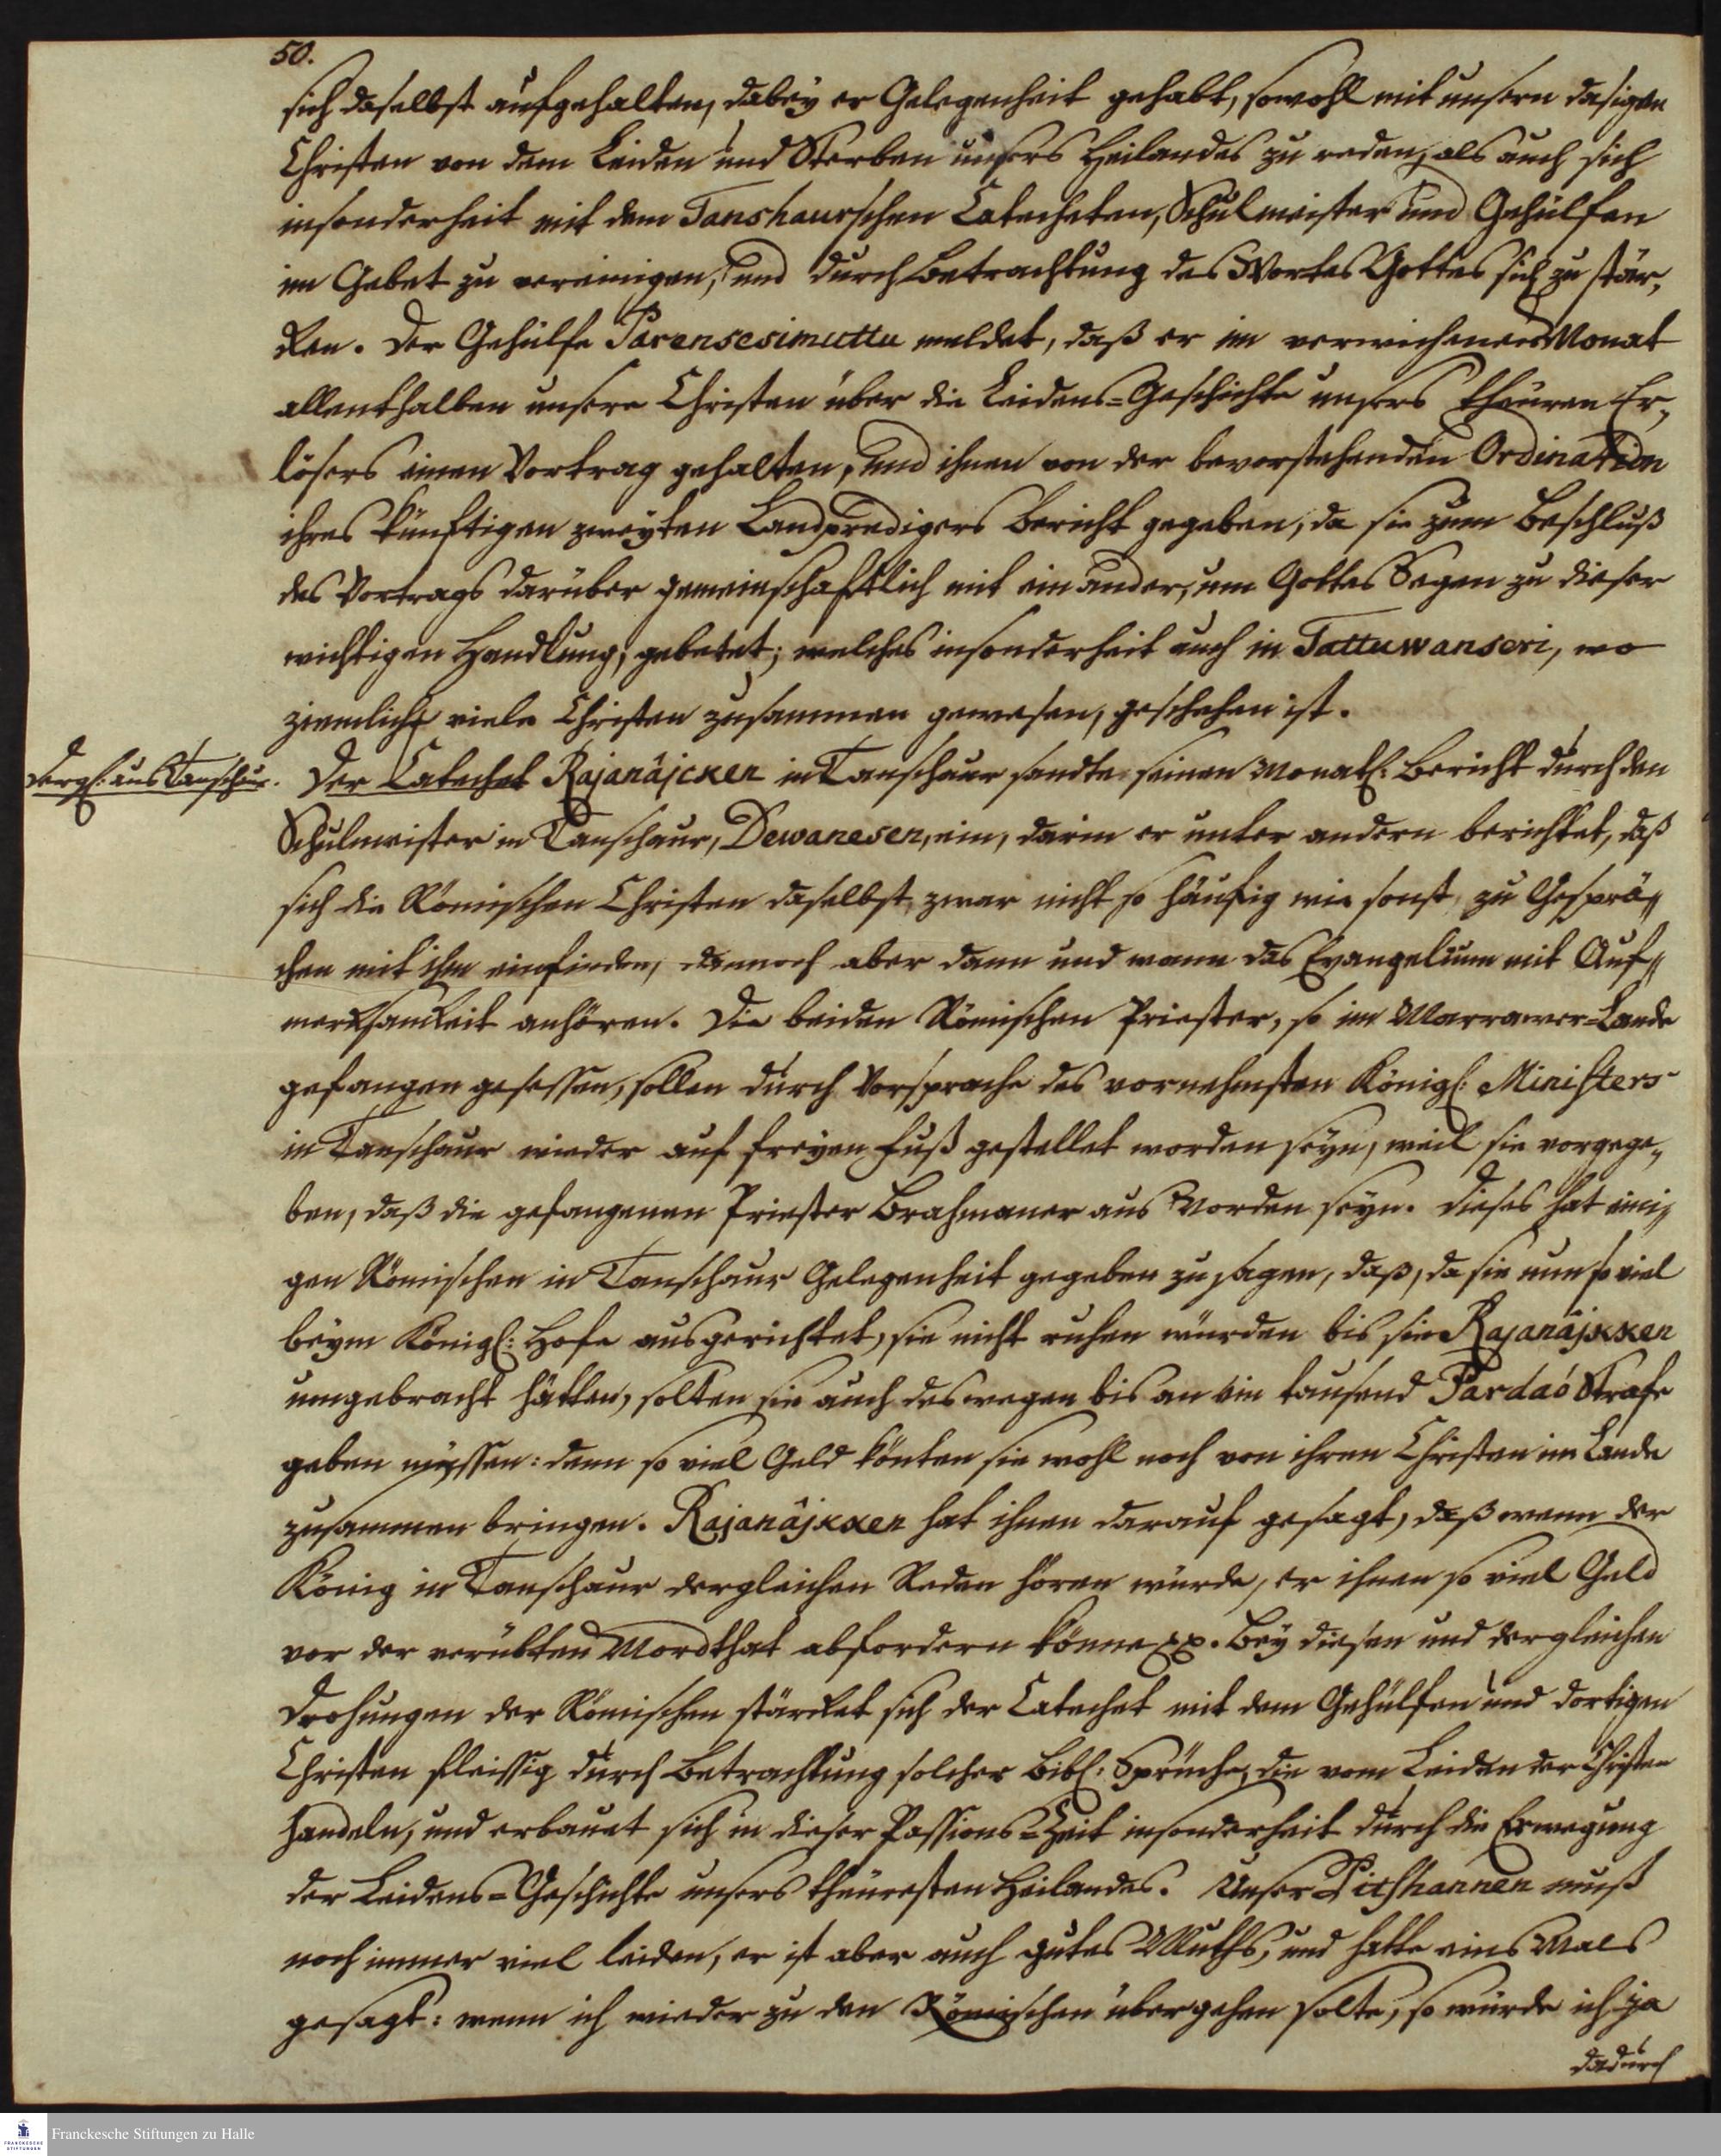 50.
sich daselbst aufgehalten, dabey er Gelegenheit gehabt, sowohl mit unsern dasigen
Christen von dem Leiden und Sterben unsers Heilandes zu reden, als auch sich
insonderheit mit dem Tanshaurschen Catecheten, Schulmeister und Gehülfen
im Gebet zu vereinigen, und durch Betrachtung des Wortes Gottes sich zu stär,
cken. Der Gehülfe Parensesimuttu meldet, daß er im verwichenen Monat
allenthalben unsere Christen über die Leidens=Geschichte unsers theuren Er,
lösers einen Vortrag gehalten, und ihnen von der bevorstehenden Ordination
ihres künftigen zweyten Landpredigers Bericht gegeben, da sie zum Beschluß
des Vortrags darüber gemeinschaftlich mit einander, um Gottes Segen zu dieser
wichtigen Handlung, gebetet; welches insonderheit auch in Tattuwanseri, wo
ziemlich viele Christen zusammen gewesen, geschehen ist.
dergl: aus Tanschaur.
Der Catechet Rajanâjcken in Tanschaur sandte seinen Monatl: Bericht durch den
Schulmeister in Tanschaur, Dewanesen, ein, darin er unter andern berichtet, daß
sich die Römischen Christen daselbst zwar nicht so häufig wie sonst zu Gesprä//
chen mit ihm einfinden, dennoch aber dann und wann das Evangelium mit Auf//
mercksamkeit anhören. Die beiden Römischen Priester, so im Marrawer=Lande
gefangen gesessen, sollen durch Vorsprache des vornehmsten Königl: Ministers
in Tanschaur wieder auf freyen Fuß gestellet worden seyn, weil sie vorgege,
ben, daß die gefangenen Priester Brahmaner aus Norden seyn. Dieses hat eini//
gen Römischen in Tanschaur Gelegenheit gegeben zu sagen, daß, da sie nun so viel
beym Königl: Hofe ausgerichtet, sie nicht ruhen würden bis sie Rajanâjkken
umgebracht hätten, solten sie auch deswegen bis an ein tausend Pardaó Strafe
geben müssen: denn so viel Geld könten sie wohl noch von ihren Christen im Lande
zusammen bringen. Rajanâjkken hat ihnen darauf gesagt, daß wenn der
König in Tanschaur dergleichen Reden hören würde, er ihnen so viel Geld
vor der verübten Mordthat abfordern könne pp. Bey diesen und dergleichen
Drohungen der Römischen stärcket sich der Catechet mit dem Gehülfen und dortigen
Christen fleissig durch Betrachtung solcher Bibl: Sprüche, die vom Leiden der Christen
handeln, und erbauet sich in dieser Passions=Zeit insonderheit durch die Erwegung
der Leidens=Geschichte unsers theuresten Heilandes. Unser Pitshannen muß
noch immer viel leiden, er ist aber auch gutes Muths, und hatte eins Mals
gesagt: wenn ich wieder zu den Römischen übergehen solte, so würde ich ja
dadurch
Franckesche Stiftungen zu Halle